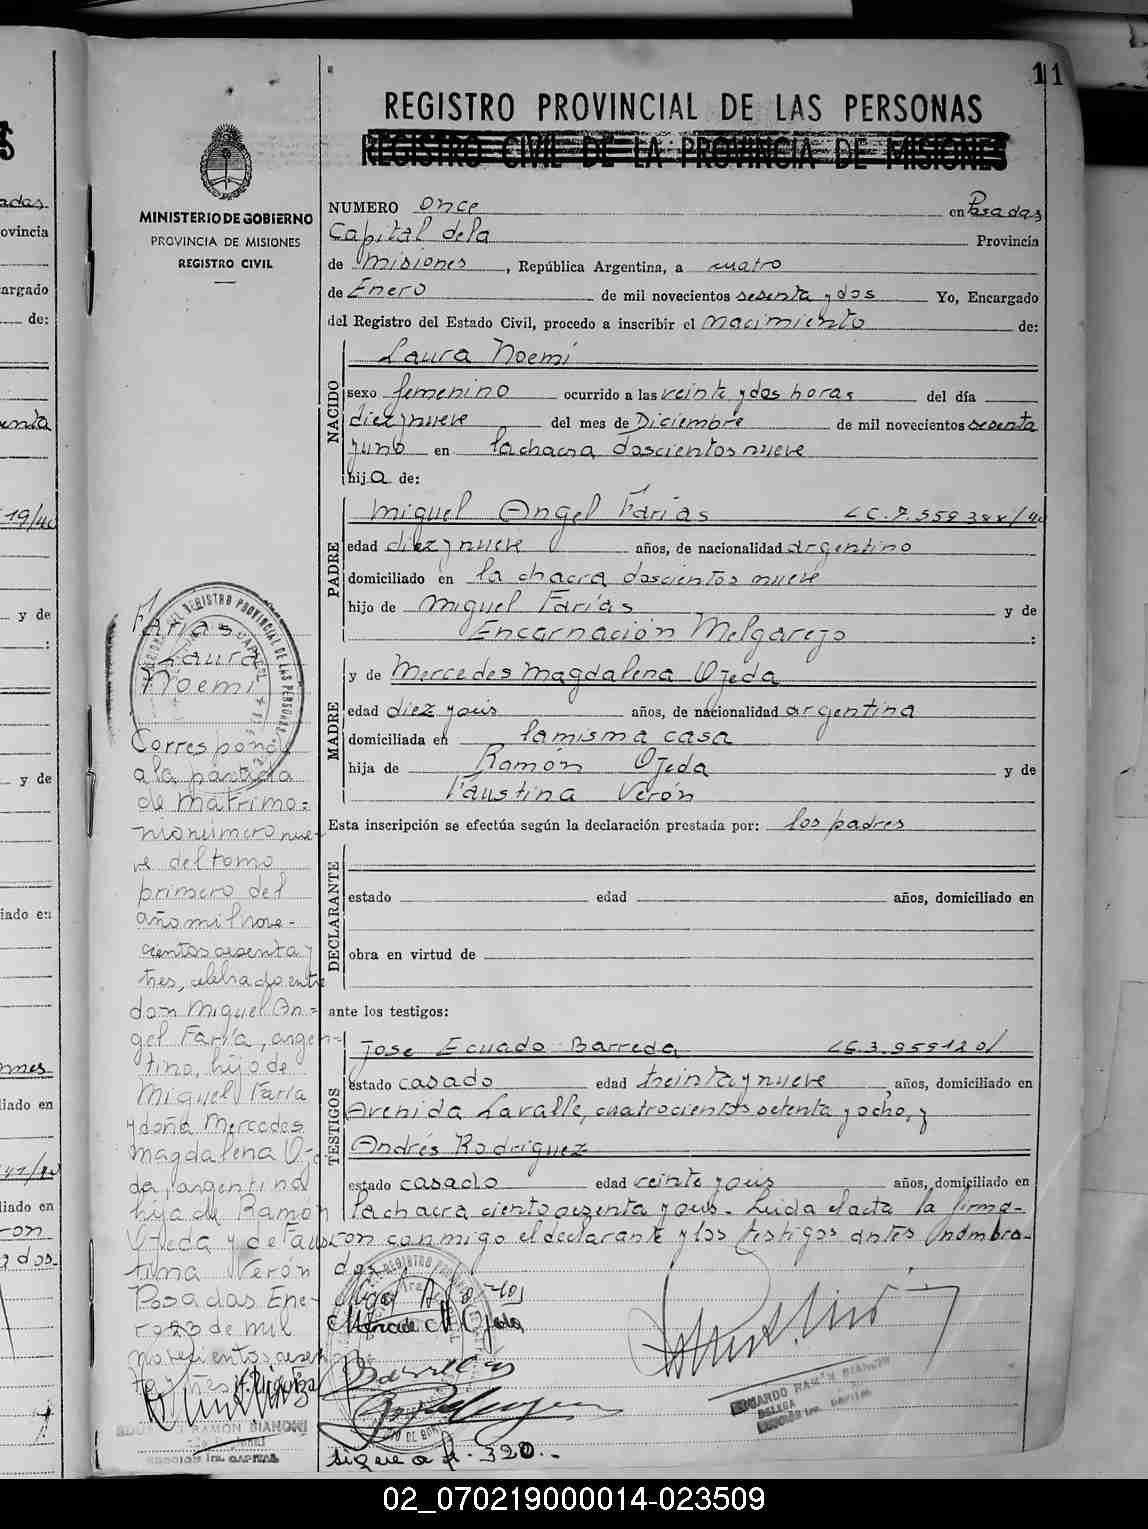 11
REGISTRO PROVINCIAL DE LAS PERSONAS
REGISTRO CIVIL DE LA PROVINCIA DE MISIONES
MINISTERIO DE GOBIERNO
PROVINCIA DE MISIONES
REGISTRO CIVIL
NUMERO once en Posadas
Capital dela Provincia
de Misiones, República Argentina, a cuatro
de Enero de mil novecientos sesenta y dos Yo, Encargado
del Registro del Estado Civil, procedo a inscribir el nacimiento de:
NACIDO
Laura Noemi
sexo femenino ocurrido a las veinte y dos horas del día
diez y nueve del mes de Diciembre de mil novecientos sesenta
y uno en la chacra doscientos nueve
hija de:
PADRE
Miguel Angel Farías
edad diez y nueve años, de nacionalidad argentino
domiciliado en la chacra doscientos nueve
hijo de Miguel Farías y de
Encarnación Melgarejo :
MADRE
y de Mercedes Magdalena Ojeda
edad diez y seis años, de nacionalidad argentina
domiciliada en la misma casa
hija de Ramón Ojeda y de
Faustina Verón
Esta inscripción se efectúa según la declaración prestada por: los padres
DECLARANTE
estado edad años, domiciliado en
obra en virtud de
ante los testigos:
TESTIGOS
Jose Ecuado Barreda
estado casado edad treinta y nueve, años, domiciliado en
Avenida Lavalle, cuatrocientos setenta y ocho, y
Andrés Rodriguez
estado casado edad veinte y seis años, domiciliado en
la chacra ciento sesenta y seis. Leida el acta la firma-
ron conmigo el declarante y los testigos antes nombra-
dos.
Mercedes M Ojeda
Barreda
sigue a f. 320.-
Farias
Laura
Noemi
Corresponde
a la partida
de matrimo=
nio número nue-
ve del tomo
primero del
año mil nove-
cientos sesenta y
tres, celebrado entre
don Miguel An=
gel Faría, argen=
tino, hijo de
Miguel Faría
y doña Mercedes
Magdalena Oje-
da, argentina
hija de Ramón
Ojeda y de Faus
tina Verón
Posadas Ene-
ro 23 de mil
novecientos sesen
ta y tres
EDUARDO RAMON BIANCHI
SECCION 1ra. CAPITAL
EDUARDO RAMON BIANCHI
02_070219000014-023509